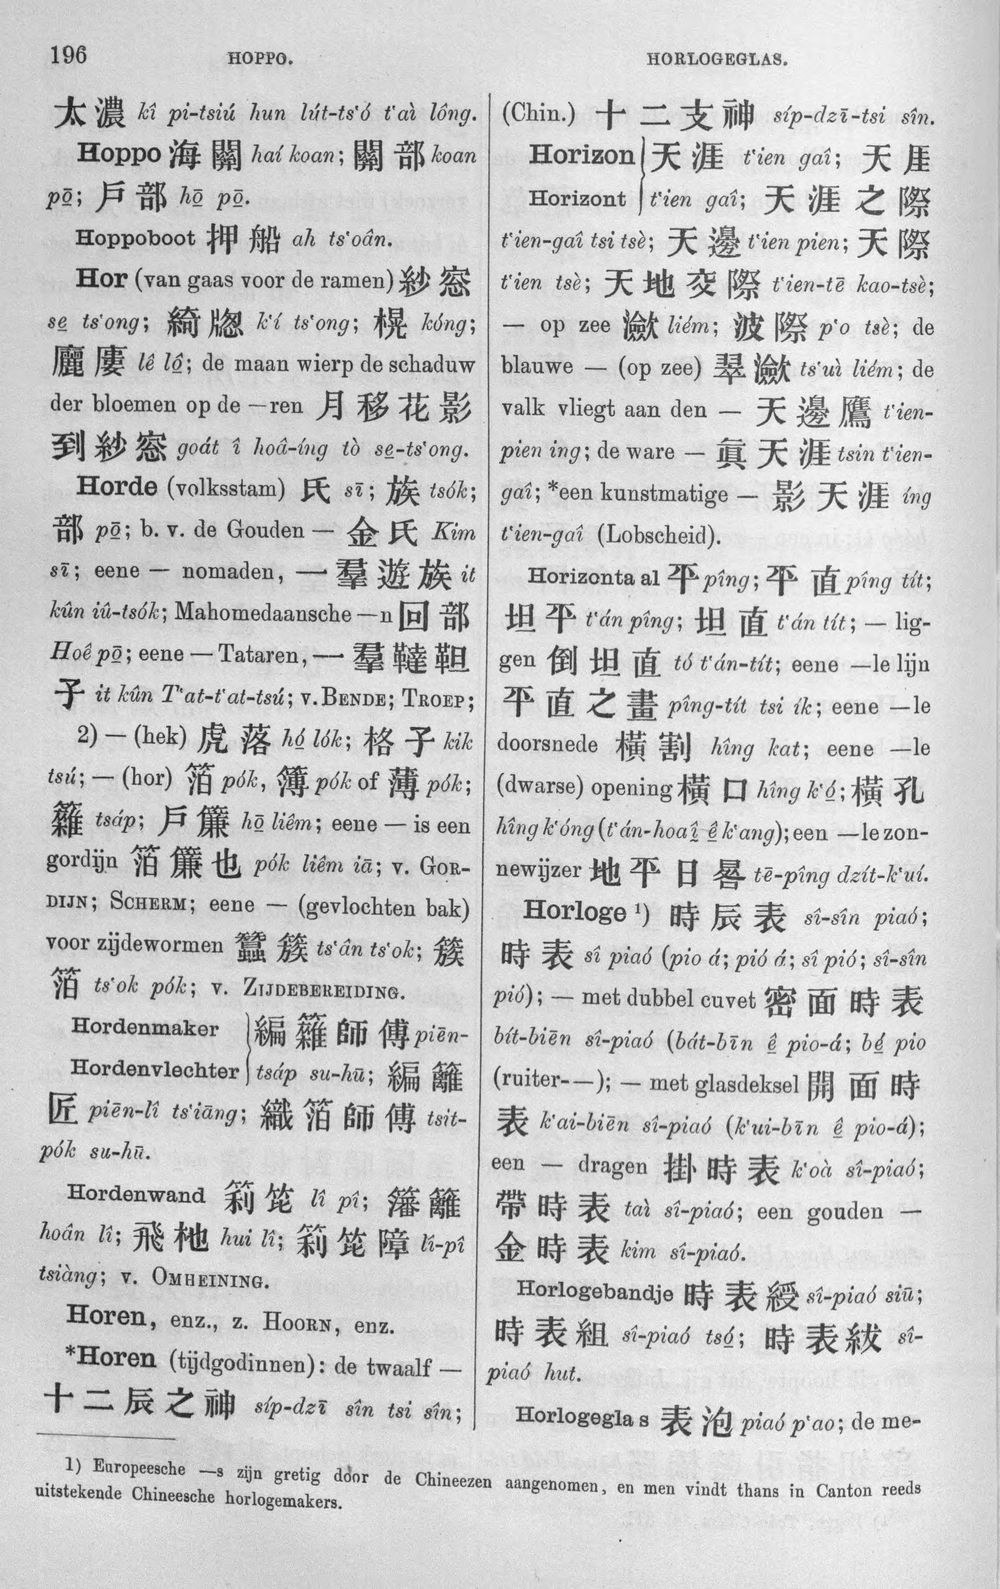 196 HOPPO. HORLOGEGLAS.
太濃 kî pi-tsiú hun lút-ts‘ó t‘aì lông.
Hoppo 海關 haí koan; 關部 koan
pō̤; 戶部 hō̤ pō̤.
Hoppoboot 押船 ah ts‘oân.
Hor (van gaas voor de ramen) 紗窓
se̤ ts‘ong; 綺牕 k‘í ts‘ong; 榥 kóng;
廲廔 lê lô̤; de maan wierp de schaduw
der bloemen op de —ren 月移花影
到紗窓 goát î hoâ-íng tò se̤-ts‘ong.
Horde (volksstam) 氏 sī; 族 tsók;
部 pō̤; b. v. de Gouden — 金氏 Kim
sī; eene — nomaden, 一羣遊族 it
kûn iû-tsók; Mahomedaansche —n 回部
Hoê pō̤; eene — Tataren, 一羣韃靼
子 it kûn T‘at-t‘at-tsú; v. BENDE; TROEP;
2) — (hek) 虎落 hó̤ lók; 格子 kik
tsú; — (hor) 箔 pók, 簿 pók of 薄 pók;
籬 tsáp; 戶簾 hō̤ liêm; eene — is een
gordijn 箔簾也 pók liêm iā; v. GOR-
DIJN; SCHERM; eene — (gevlochten bak)
voor zijdewormen 蠶簇 ts‘ân ts‘ok; 簇
箔 ts‘ok pók; v. ZIJDEBEREIDING.
Hordenmaker 編籬師傅 piēn-
Hordenvlechter tsáp su-hū; 編籬
匠 piēn-lî ts‘iāng; 織箔師傅 tsit-
pók su-hū.
Hordenwand 䈂笓 lî pî; 籓籬
hoân lî; 飛杝 hui lî; 䈂笓障 lî-pî
tsiàng; v. OMHEINING.
Horen, enz., z. HOORN, enz.
*Horen (tijdgodinnen): de twaalf —
十二辰之神 síp-dzī sîn tsi sîn;
(Chin.) 十二支神 síp-dzī-tsi sîn.
Horizon 天涯 t‘ien gaî; 天厓
Horizont t‘ien gaî; 天涯之際
t‘ien-gaî tsi tsè; 天邊 t‘ien pien; 天際
t‘ien tsè; 天地交際 t‘ien-tē kao-tsè;
— op zee 瀲 liém; 波際 p‘o tsè; de
blauwe — (op zee) 翠瀲 ts‘uì liém; de
valk vliegt aan den — 天邊鷹 t‘ien-
pien ing; de ware — 眞天涯 tsin t‘ien-
gaî; *een kunstmatige — 影天涯 íng
t‘ien-gaî (Lobscheid).
Horizontaal 平 pîng; 平直 pîng tít;
坦平 t‘án pîng; 坦直 t‘án tít; — lig-
gen 倒坦直 tó t‘án-tít; eene —le lijn
平直之畫 pîng-tít tsi ík; eene —le
doorsnede 橫割 hîng kat; eene —le
(dwarse) opening 橫口 hîng k‘ó̤; 橫孔
hîng k‘óng (t‘án-hoaî̤ ê̤ k‘ang); een —le zon-
newijzer 地平日晷 tē-pîng dzít-k‘uí.
Horloge ¹) 時辰表 sî-sîn piaó;
時表 sî piaó (pio á; pió á; sî pió; sî-sîn
pió); — met dubbel cuvet 密面時表
bít-biēn sî-piaó (bát-bīn ê̤ pio-á; bé̤ pio
(ruiter- —); — met glasdeksel 開面時
表 k‘ai-biēn sî-piaó (k‘ui-bīn ê̤ pio-á);
een — dragen 掛時表 k‘oà sî-piaó;
帶時表 taì sî-piaó; een gouden —
金時表 kim sî-piaó.
Horlogebandje 時表綬 sî-piaó siū;
時表組 sî-piaó tsó̤; 時表紱 sî-
piaó hut.
Horlogeglas 表泡 piaó p‘ao; de me-
1) Europeesche —s zijn gretig door de Chineezen aangenomen, en men vindt thans in Canton reeds
uitstekende Chineesche horlogemakers.